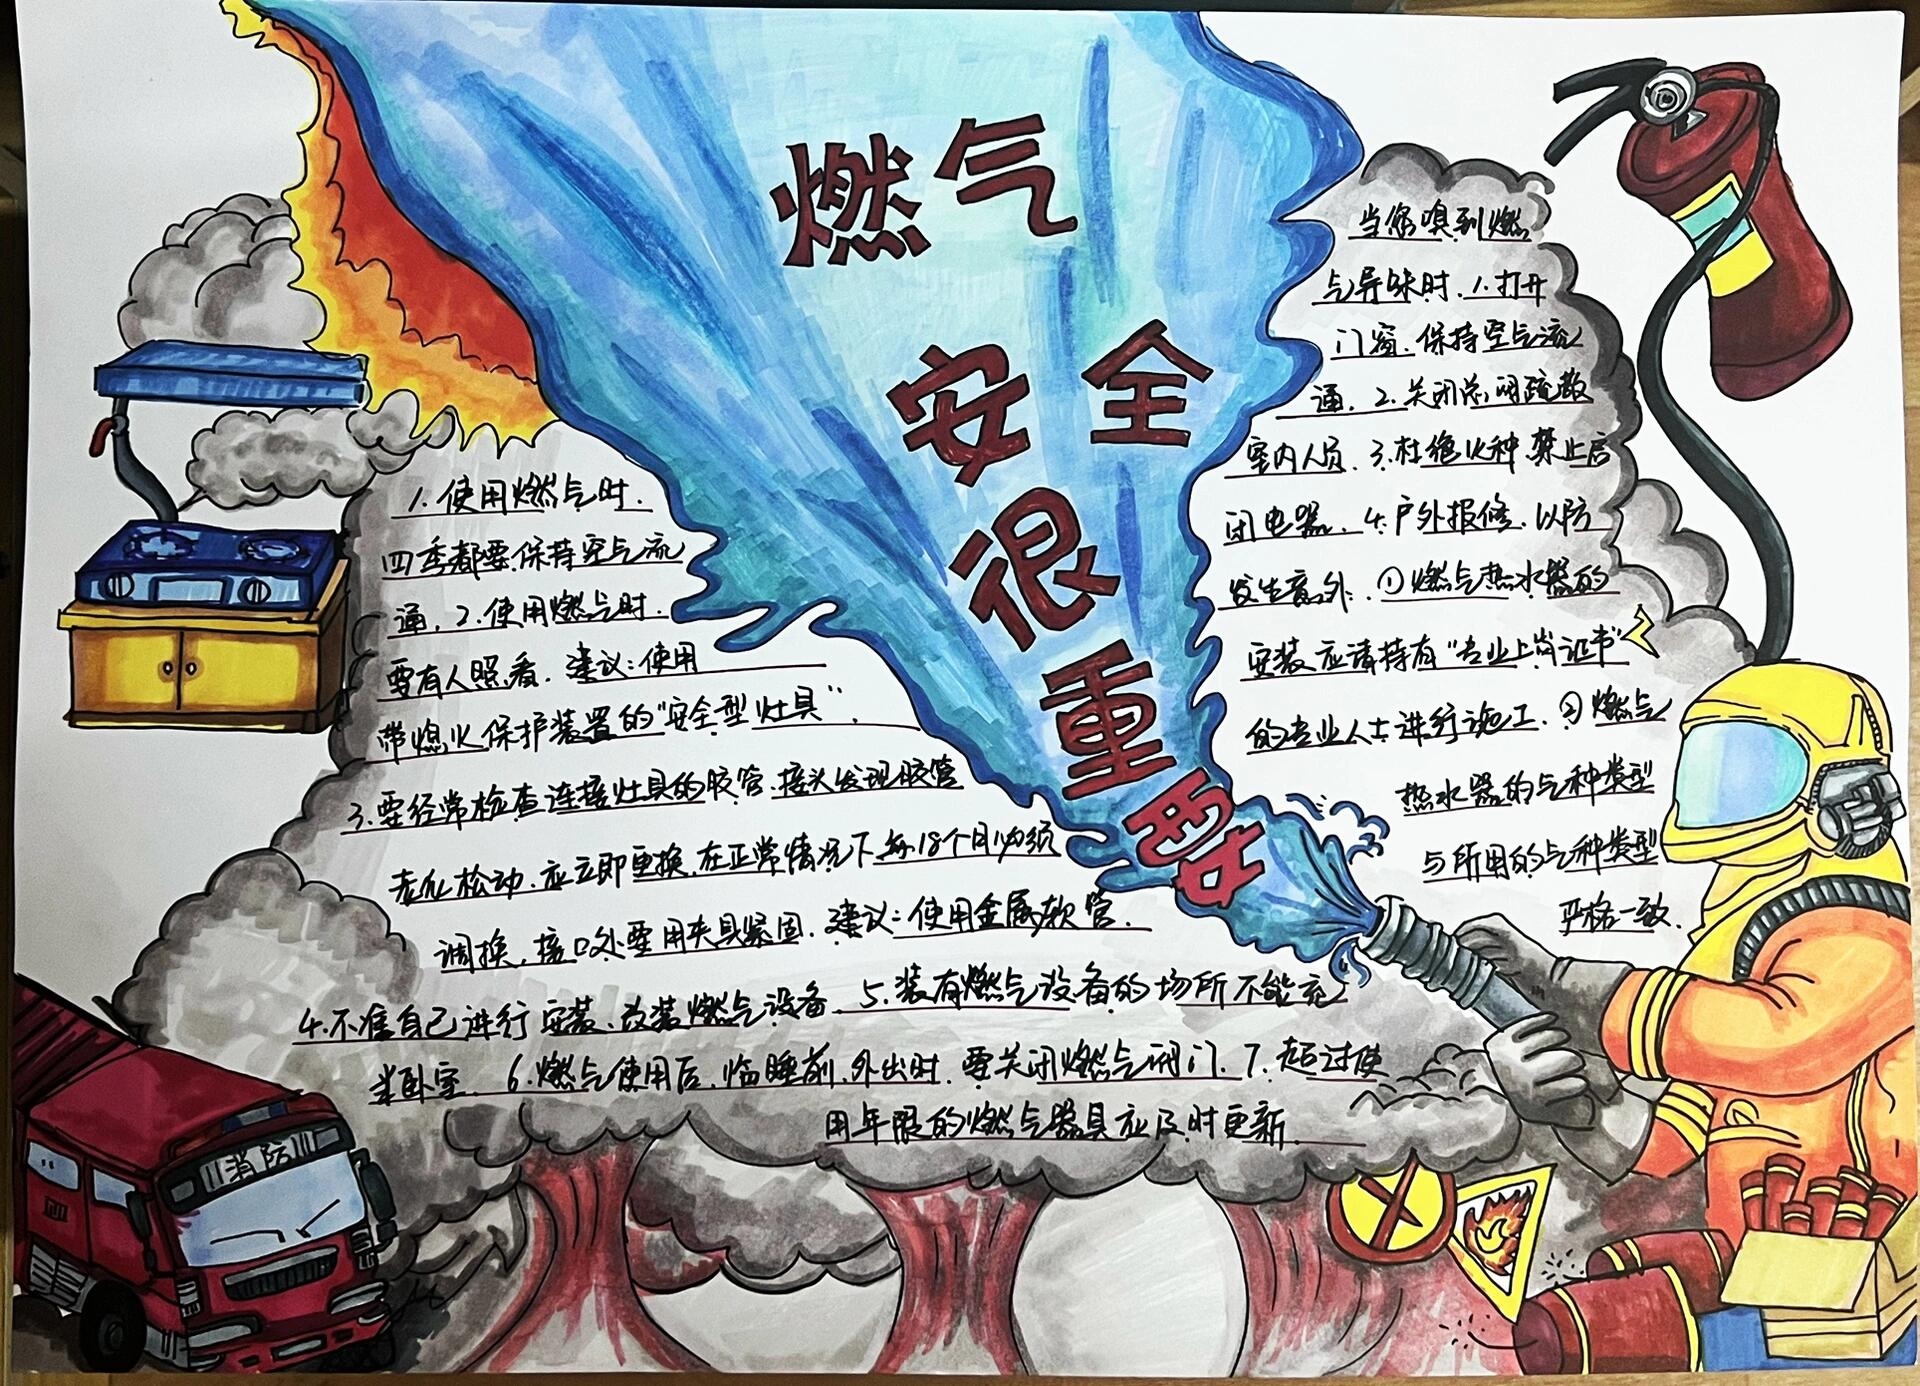 燃气
安全
很
重
要
1.使用燃气时.
四季都要保持空气流
通.2.使用燃气时.
要有人照看.建议:使用
带熄火保护装置的"安全型灶具".
3.要经常检查连接灶具的胶管.接头发现胶管
老化松动.应立即更换.在正常情况下每18个月必须
调换.接口处要用夹具紧固.建议:使用金属软管.
4.不准自己进行安装.改装燃气设备.5.装有燃气设备的场所不能充
当卧室.6.燃气使用后.临睡前.外出时.要关闭燃气阀门.7.超过使
用年限的燃气器具应及时更新.
当您嗅到燃
气异味时.1.打开
门窗.保持空气流
通.2.关闭总阀疏散
室内人员.3.杜绝火种禁止启
闭电器.4.户外报修.以防
发生意外.①燃气热水器的
安装应请持有"专业上岗证书"
的专业人士进行施工.②燃气
热水器的气种类型
与所用的气种类型
严格一致.
消防